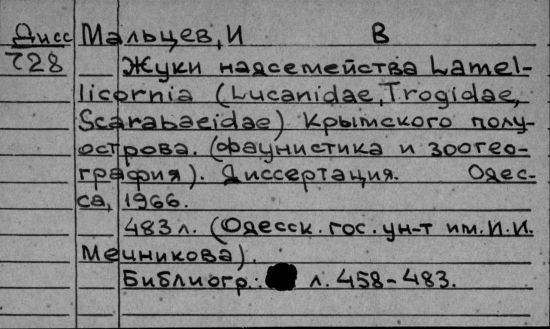 Дисс Мальцев, И В
728 Жуки надсемейства Lamel-
licornia (Lucanidae, Trogidae,
Scarabaeidae) Крымского полу-
острова. (фаунистика и зоогео-
графия). Диссертация. Одес-
са, 1966.
483 л. (Одесск. гос. ун-т им. И.И.
Мечникова).
Библиогр.: л. 458-483.